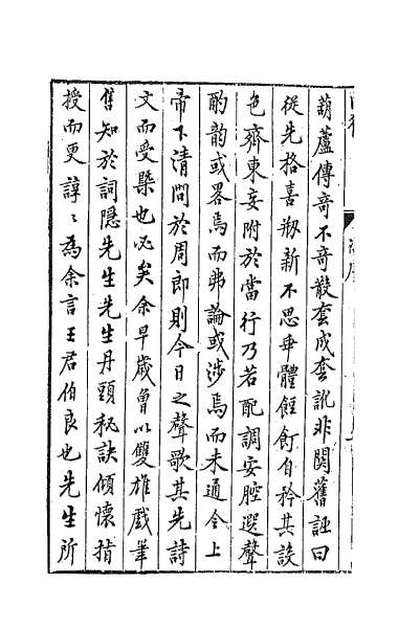 葫蘆傳奇不奇散套成套訛非關舊誣曰
從先格喜剏新不思乖體餖飣自矜其設
色齊東妄附於當行乃若配調安腔選聲
酌韵或畧焉而弗論或涉焉而未通令上
帝下清問於周郎則今日之聲歌其先詩
文而受槩也必矣余早歲曾以雙雄戲筆
售知於詞隱先生先生丹頭秘訣傾懷指
授而更諄〻為余言王君伯良也先生所